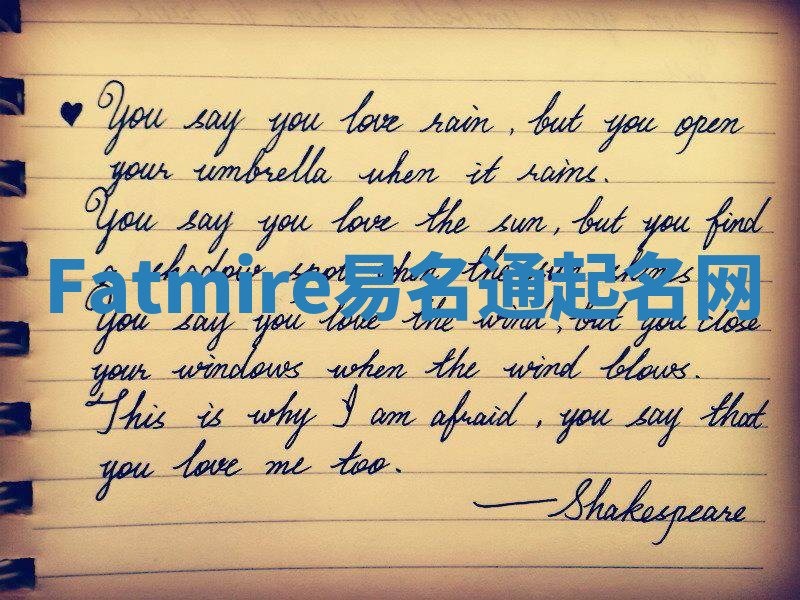 ♥ You say you love rain, but you open
your umbrella when it rains.
You say you love the sun, but you find
a shadow spot when the sun shines
Fatmire易名通起名网
You say you love the wind, but you close
your windows when the wind blows.
This is why I am afraid, you say that
you love me too.
—Shakespeare